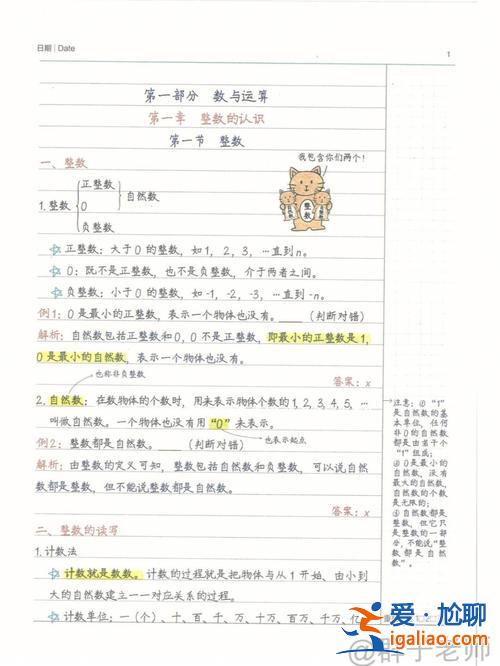 日期 | Date
1
第一部分 数与运算
第一章 整数的认识
第一节 整数
一、整数
我包含你们两个!
正整数
1.整数 0 自然数
负整数
整数
☆正整数:大于0的整数,如1,2,3,…直到n。
☆0:既不是正整数,也不是负整数,介于两者之间。
☆负整数:小于0的整数,如-1,-2,-3,…直到-n。
例1:0是最小的正整数,表示一个物体也没有。____(判断对错)
解析:自然数包括正整数和0,0不是正整数,即最小的正整数是1,
0是最小的自然数,表示一个物体也没有。
也称非负整数
答案:x
2.自然数:在数物体的个数时,用来表示物体个数的1,2,3,4,5,…
叫做自然数。一个物体也没有用“0”来表示。
也表示起点
例2:整数都是自然数。____(判断对错)
解析:由整数的定义可知,整数包括自然数和负整数,可以说自然
数都是整数,但不能说整数都是自然数。
答案:x
注意:①“1”
是自然数的基
本单位,任何
非0的自然数
都是由若干个
“1”组成;
②0是最小的
自然数,没有
最大的自然数,
自然数的个数
是无限的;
③自然数都是
整数,但它只
是整数的一部
分,不能说“整
数都是自然
数”。
二、整数的读写
1.计数法
☆计数就是数数。计数的过程就是把物体与从1开始、由小到
大的自然数建立一一对应关系的过程。
☆计数单位:一(个)、十、百、千、万、十万、百万、千万、亿
爱·尬聊
www.igaliao.com
@群子老师